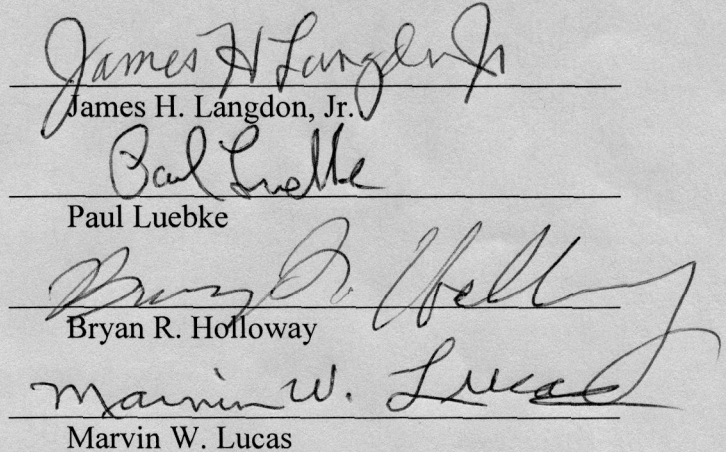 James H Langdon Jr
James H. Langdon, Jr.
Paul Luebke
Paul Luebke
Bryan R. Holloway
Bryan R. Holloway
Marvin W. Lucas
Marvin W. Lucas